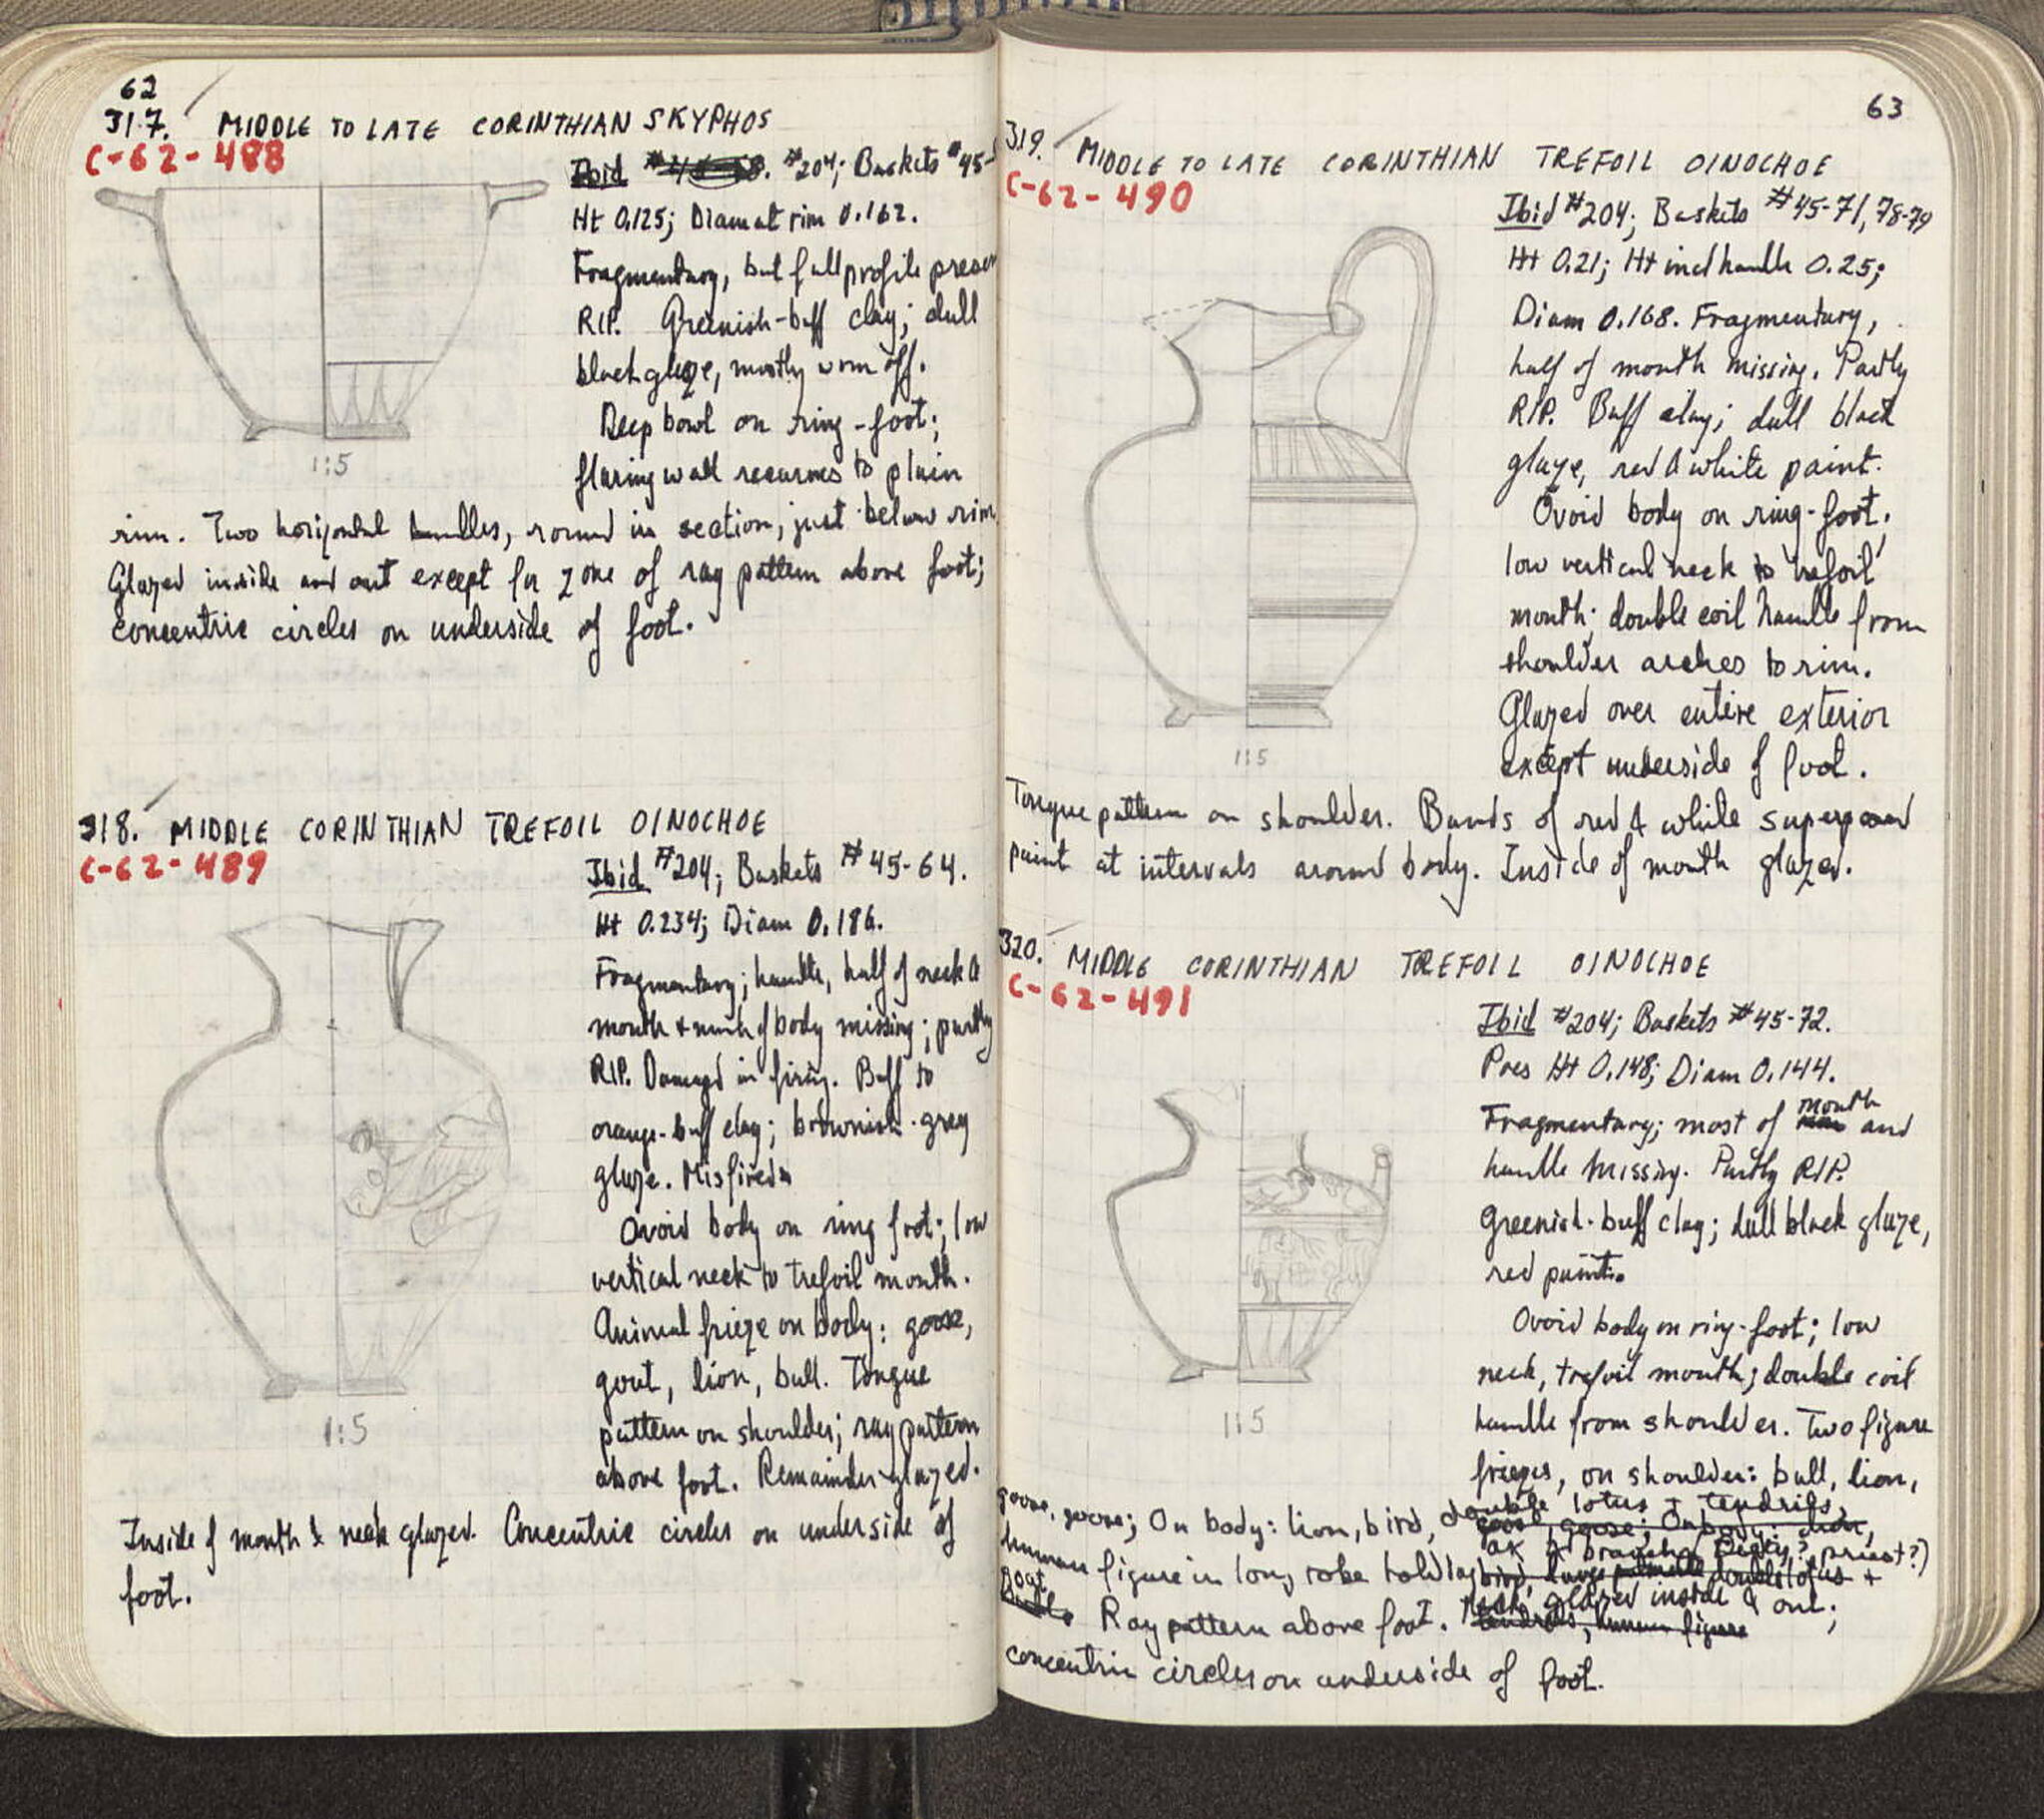 62
317. MIDDLE TO LATE CORINTHIAN SKYPHOS
C-62-488
Ibid #204; Baskets #45-
Ht 0.125; Diam at rim 0.162.
Fragmentary, but full profile preser
RIP. Greenish-buff clay; dull
black glaze, mostly worn off.
Deep bowl on ring-foot;
flaring wall recurves to plain
rim. Two horizontal handles, round in section, just below rim
Glazed inside and out except for zone of ray pattern above foot;
concentric circles on underside of foot.
1:5
318. MIDDLE CORINTHIAN TREFOIL OINOCHOE
C-62-489
Ibid #204; Baskets #45-64.
Ht 0.234; Diam 0.186.
Fragmentary; handle, half of neck &
mouth + much of body missing; partly
RIP. Damaged in firing. Buff to
orange-buff clay; brownish-grey
glaze. Misfired.
Ovoid body on ring foot; low
vertical neck to trefoil mouth.
Animal frieze on body: goose,
goat, lion, bull. Tongue
pattern on shoulder; ray pattern
above foot. Remainder glazed.
Inside of mouth & neck glazed. Concentric circles on underside of
foot.
1:5
63
319. MIDDLE TO LATE CORINTHIAN TREFOIL OINOCHOE
C-62-490
Ibid #204; Baskets #45-71, 78-79
Ht 0.21; Ht incl handle 0.25;
Diam 0.168. Fragmentary,
half of mouth missing. Partly
RIP. Buff clay; dull black
glaze, red & white paint.
Ovoid body on ring-foot;
low vertical neck to trefoil
mouth; double coil handle from
shoulder arches to rim.
Glazed over entire exterior
except underside of foot.
Tongue pattern on shoulder. Bands of red & white superposed
paint at intervals around body. Inside of mouth glazed.
1:5
320. MIDDLE CORINTHIAN TREFOIL OINOCHOE
C-62-491
Ibid #204; Baskets #45-72.
Pres Ht 0.148; Diam 0.144.
Fragmentary; most of mouth and
handle missing. Partly RIP.
Greenish-buff clay; dull black glaze,
red paint.
Ovoid body on ring-foot; low
neck, trefoil mouth; double coil
handle from shoulder. Two figure
friezes, on shoulder: bull, lion,
goose, goose; On body: lion, bird, double lotus + tendrils,
human figure in long robe holding priest?)
goat Ray pattern above foot. Neck glazed inside & out;
concentric circles on underside of foot.
1:5